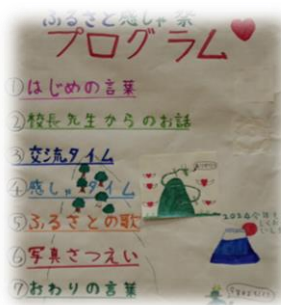 ふるさと感しゃ祭
プログラム
①はじめの言葉
②校長先生からのお話
③交流タイム
④感しゃタイム
⑤ふるさとの歌
⑥写真さつえい
⑦おわりの言葉